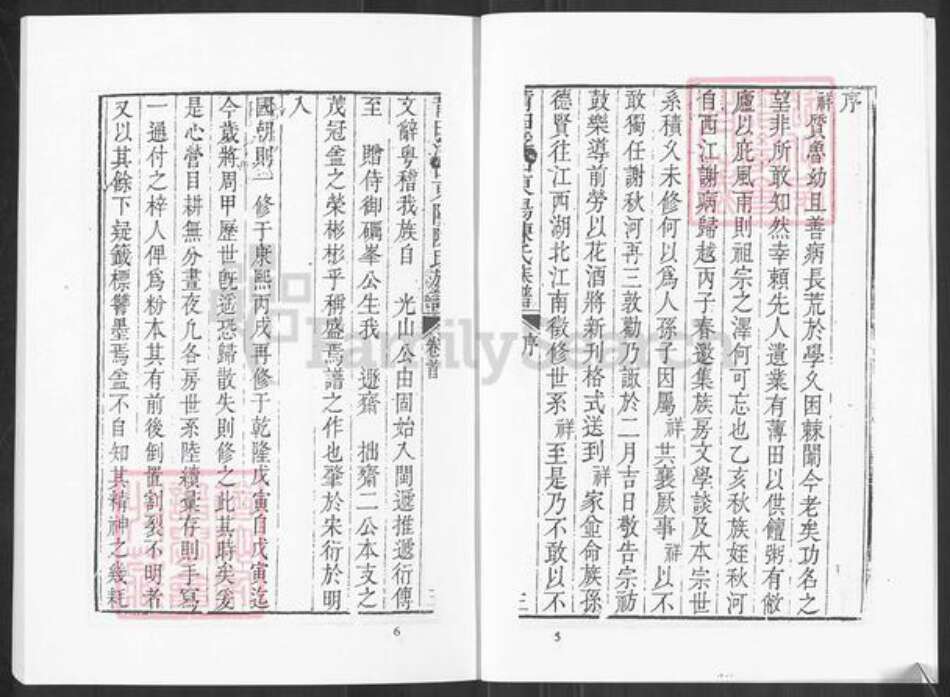 序
祥質魯幼且善病長荒於學久困棘闈今老矣功名之
望非所敢知然幸賴先人遺業有薄田以供饘粥有敝
廬以庇風雨則祖宗之澤何可忘也乙亥秋族姪秋河
自西江謝病歸越丙子春邀集族房文學談及本宗世
系積久未修何以爲人孫子因屬祥共襄厥事祥以不
敢獨任謝秋河再三敦勸乃諏於二月吉日敬告宗祊
鼓樂導前勞以花酒將新刊格式送到祥家僉命族孫
德賢往江西湖北江南徵修世系祥至是乃不敢以不
氏族譜
序
三
5
卷首
文辭粤稽我族自 光山公由固始入閩遞推遞衍傳
至 贈侍御礪峯公生我 遯齋 拙齋二公本支之
茂冠盍之榮彬彬乎稱盛焉譜之作也肇於宋衍於明
入
國朝則一修于康熙丙戌再修于乾隆戊寅自戊寅迄
今歲將周甲歷世旣遥恐歸散失則修之此其時矣爰
是心營目耕無分晝夜凡各房世系陸續彙存則手寫
一通付之梓人俾爲粉本其有前後倒置割裂不明者
又以其餘下疑籤標響墨焉盍不自知其精神之幾耗
6
FamilySearch